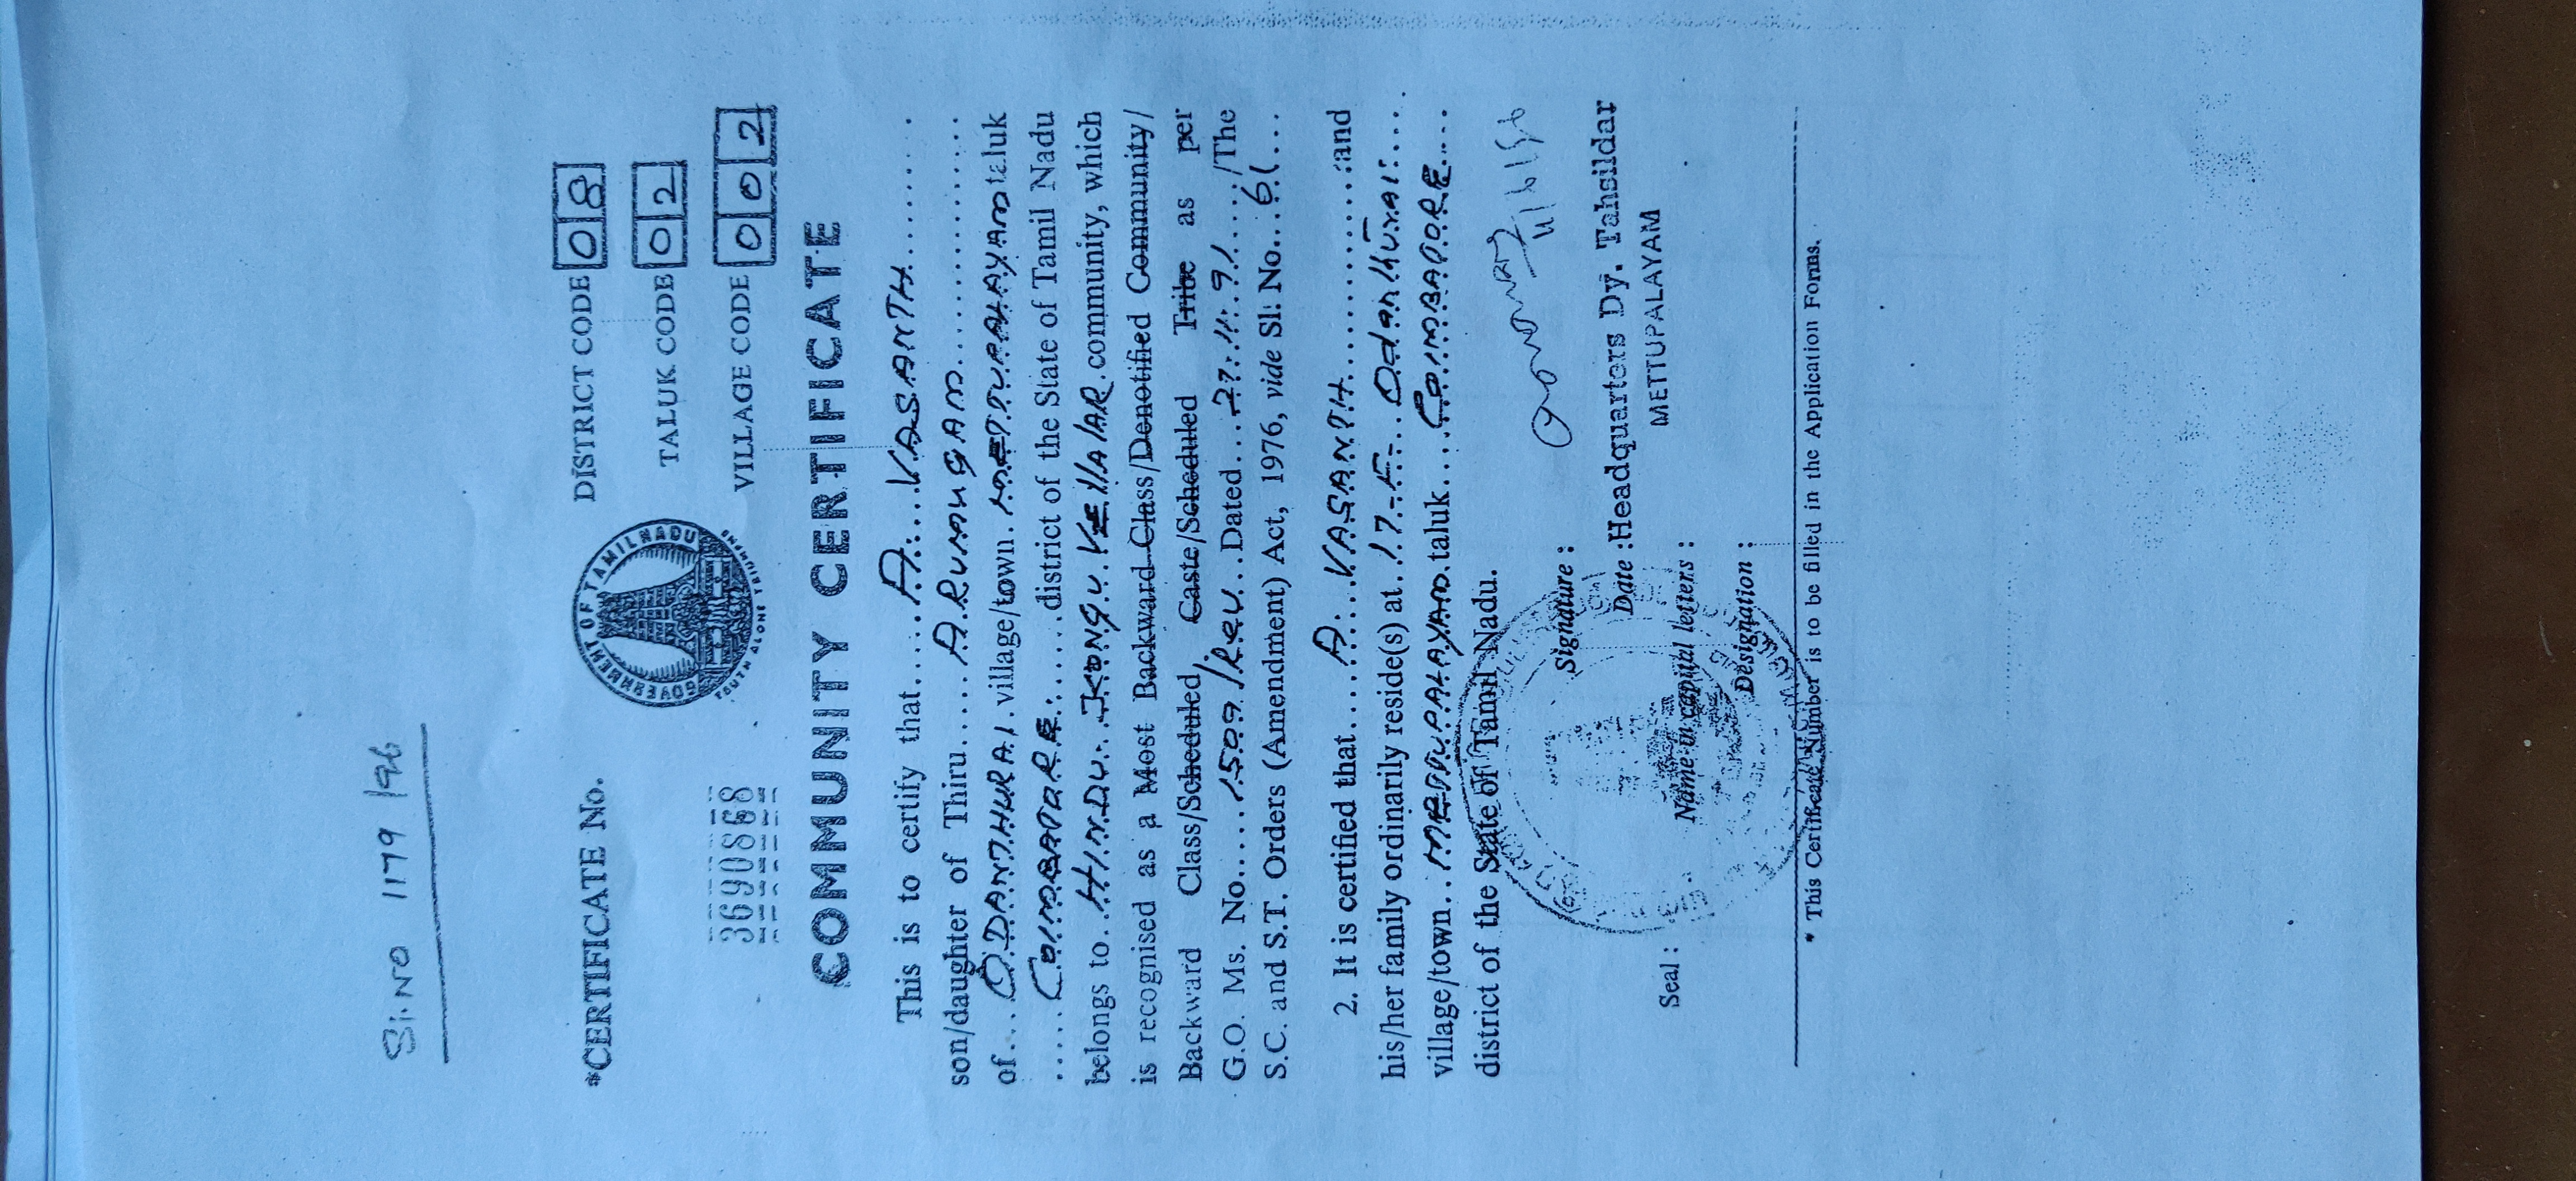 Sl.NO 1179/96
*CERTIFICATE No.
36908668
GOVERNMENT OF TAMILNADU
TRUTH ALONE TRIUMPHS
DISTRICT CODE 08
TALUK CODE 02
VILLAGE CODE 002
COMMUNITY CERTIFICATE
This is to certify that.....A...VASANTH.........
son/daughter of Thiru.....A.RUMUGAM..............
of...ODANTHURAI.village/town.METTUPALAYAM taluk
.....COIMBATORE.......district of the State of Tamil Nadu
belongs to..HINDU..KONGU.VEllAlAR.community, which
is recognised as a Most Backward Class/Denotified Community/
Backward Class/Scheduled Caste/Scheduled Tribe as per
G.O. Ms. No.....1509/Rev...Dated...27.11.91...../The
S.C. and S.T. Orders (Amendment) Act, 1976, vide Sl. No...61...
2. It is certified that.....A...VASANTH..............and
his/her family ordinarily reside(s) at..17-E-..Odanthurai....
village/town..METTUPALAYAM.taluk....COIMBATORE.....
district of the State of Tamil Nadu.
Signature :
Date : Headquarters Dy. Tahsildar
METTUPALAYAM
Seal :
Name in capital letters :
Designation :
* This Certificate Number is to be filled in the Application Forms.